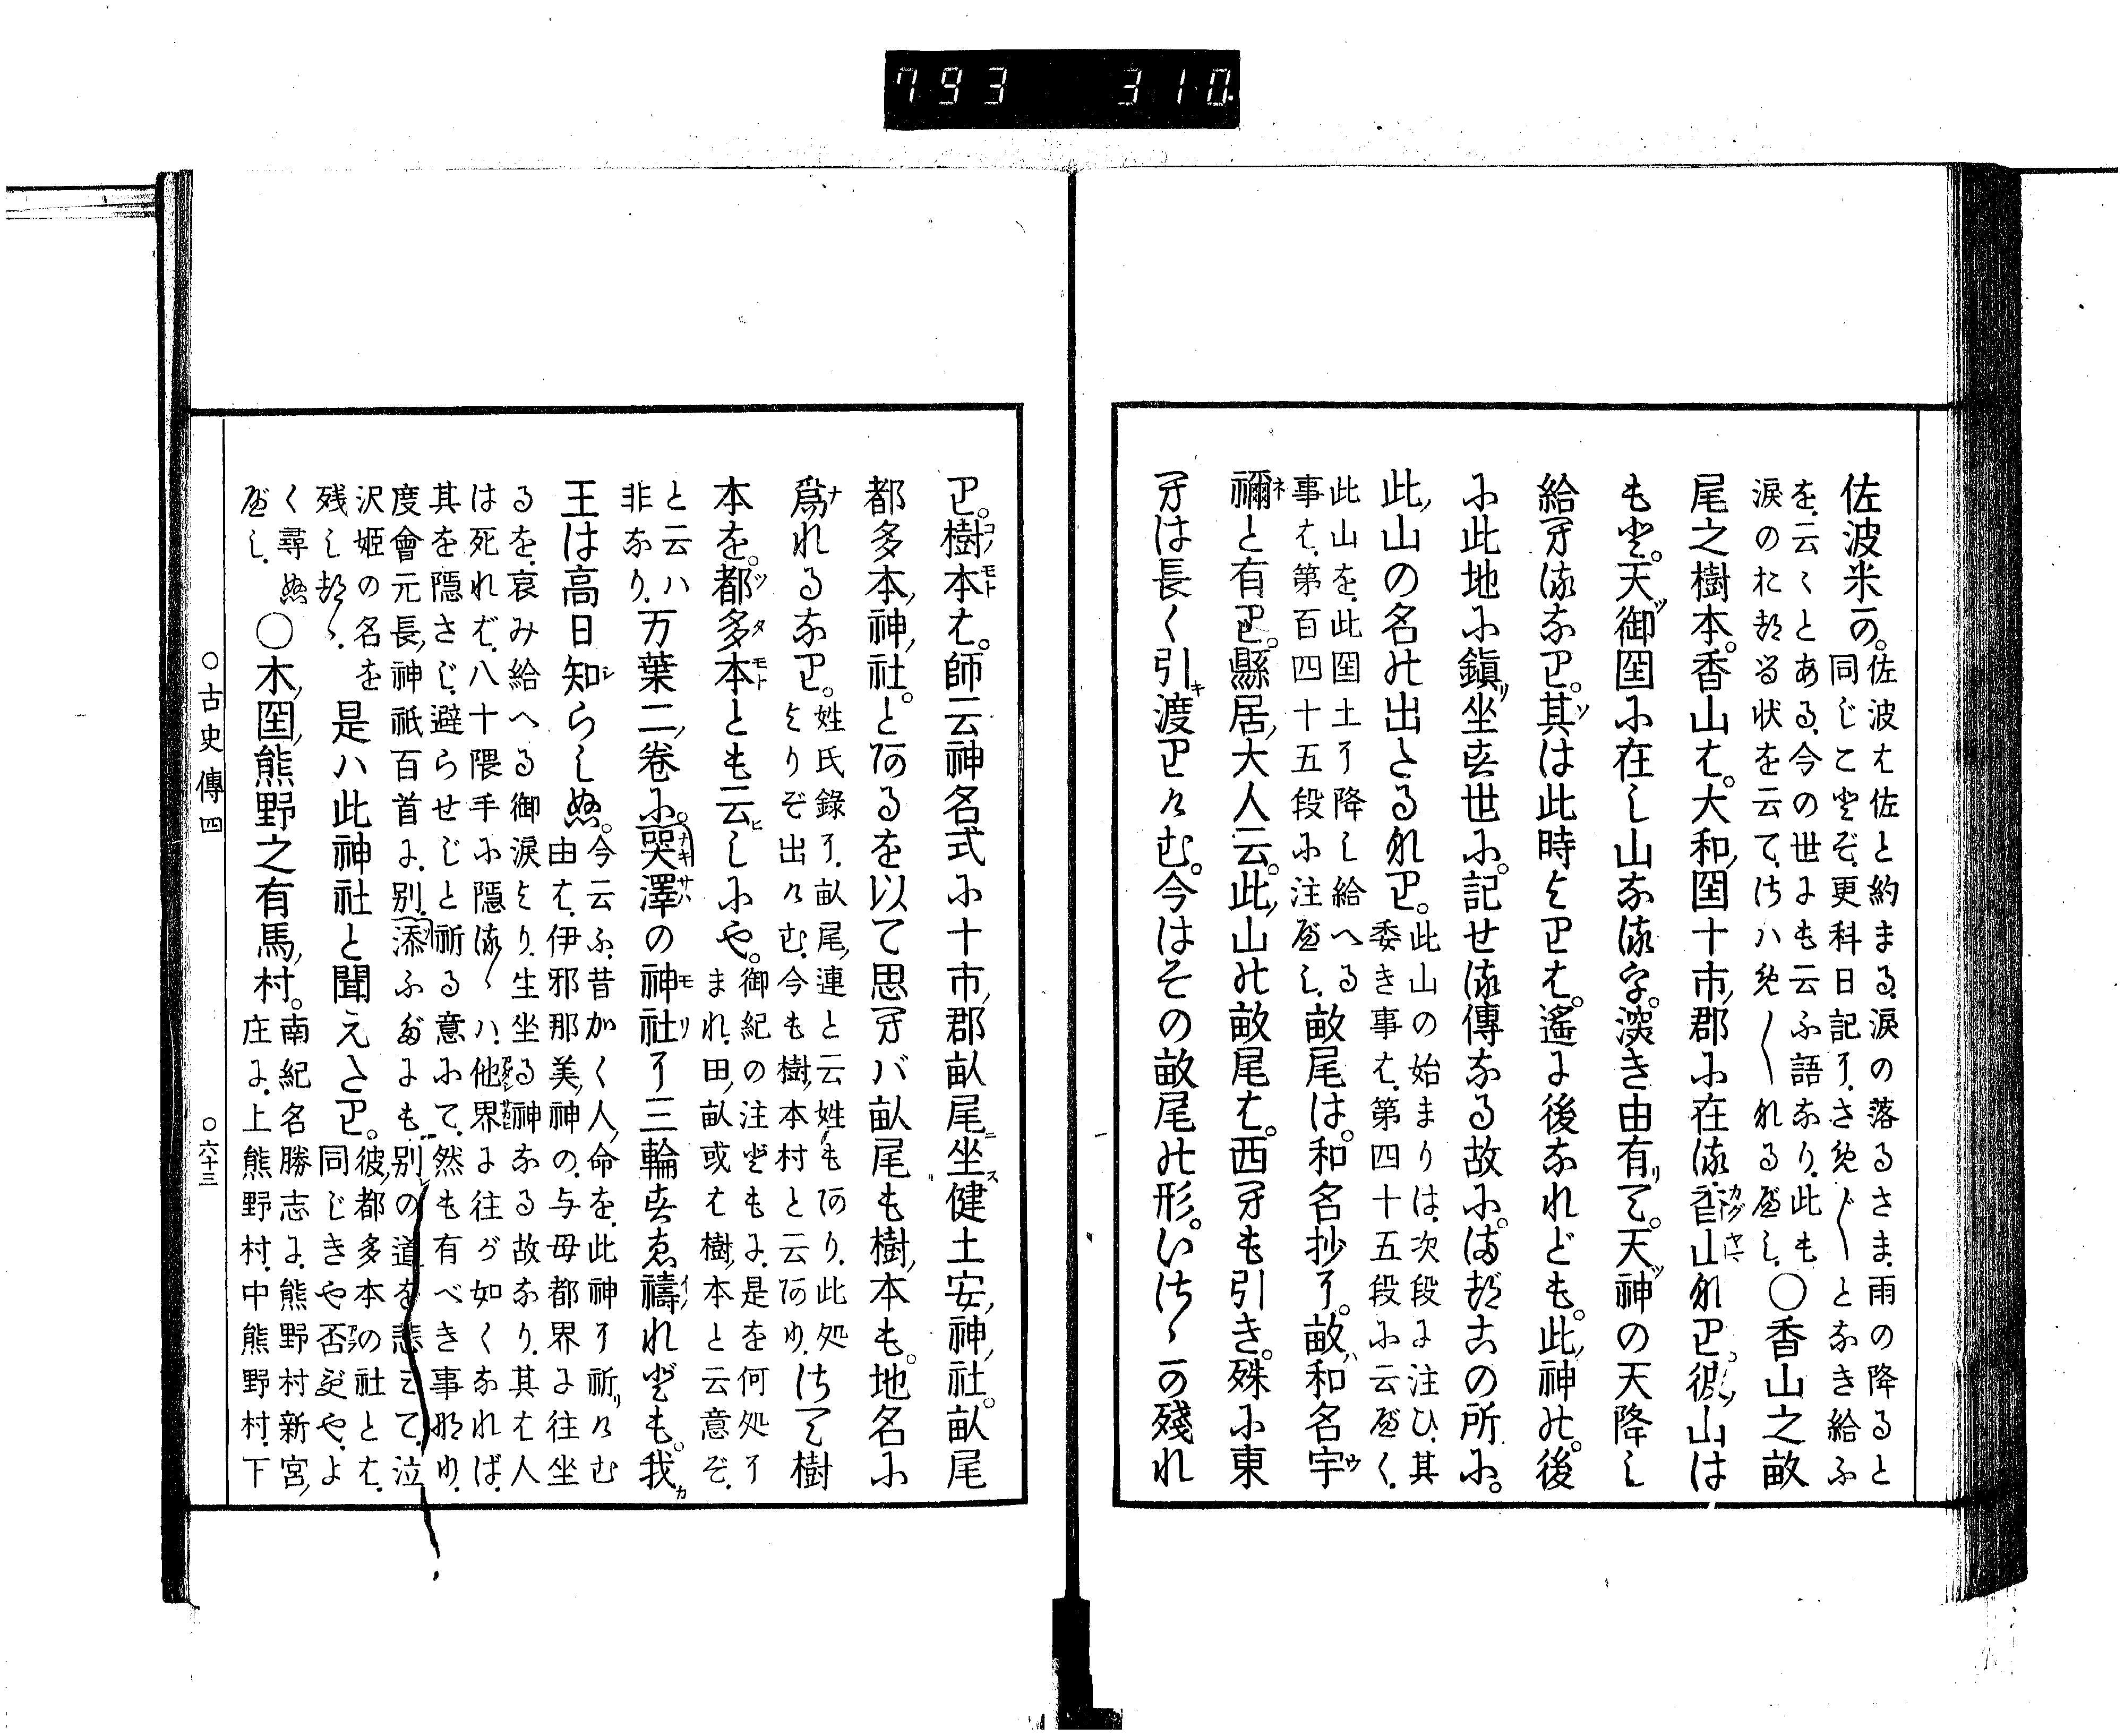 793 310
佐波米の。
佐波は佐と約まる。涙の落るさま。雨の降ると
同じことぞ。更科日記に。さめ〴〵となき給ふ
を。云〻とある。今の世にも云ふ語なり。此も
涙のおつる状を云て。
〇香山之畝
尾之樹本。香山は。大和國十市郡に在る。香山なり。彼山は
もと。天御國に在し山なるが。深き由有て。天神の天降し
給へるなり。其は此時よりは。遙に後なれども。此神の。後
に此地に鎭坐る世に。記せる傳なる故に。まづ古の所に。
此山の名の出たるなり。
此山の始まりは。次段に注ひ。其
委き事は。第四十五段に云べく。
此山を。此国土に降し給へる
事は。第百四十五段に注べし。
畝尾は。和名抄に。畝和名宇
禰と有り。縣居大人云。此山の畝尾は。西へも引き。殊に東
へは長く引渡りけむ。今はその畝尾の形。いさゝか殘れ
り。樹本は。師云神名式に十市郡畝尾坐健土安神社。畝尾
都多本神社。とあるを以て思へバ畝尾も樹本も。地名に
爲れるなり。
姓氏錄に。畝尾連と云姓もあり。此処
よりぞ出けむ。今も樹本村と云あり。
さて樹
本を。都多本とも云しにや。
御紀の注どもに。是を何処に
まれ。田畝或は樹本と云意ぞ。
と云ハ
非なり。
万葉二卷に。哭澤の神社に三輪すゑ禱れども。我
王は高日知らしぬ。
今云ふ。昔かく人命を。此神に祈けむ
由は。伊邪那美神の。与母都界に往坐
るを。哀み給へる御涙より。生坐る神なる故なり。其は人
は死れば。八十隈手に隱るゝハ。他界に往が如くなれば。
其を隱さじ。避らせじと祈る意にて。然も有べき事なり。
度會元長神祇百首に。別添ふ
にも。別の道を悲みて。泣
沢姫の名を
残しつゝ。
是ハ此神社と聞えたり。
彼都多本の社とは。
同じきや否ずや。よ
く尋ぬ
べし。
〇木國熊野之有馬村。
南紀名勝志に。熊野村新宮
庄に。上熊野村。中熊野村。下
〇古史傳四 〇六十三